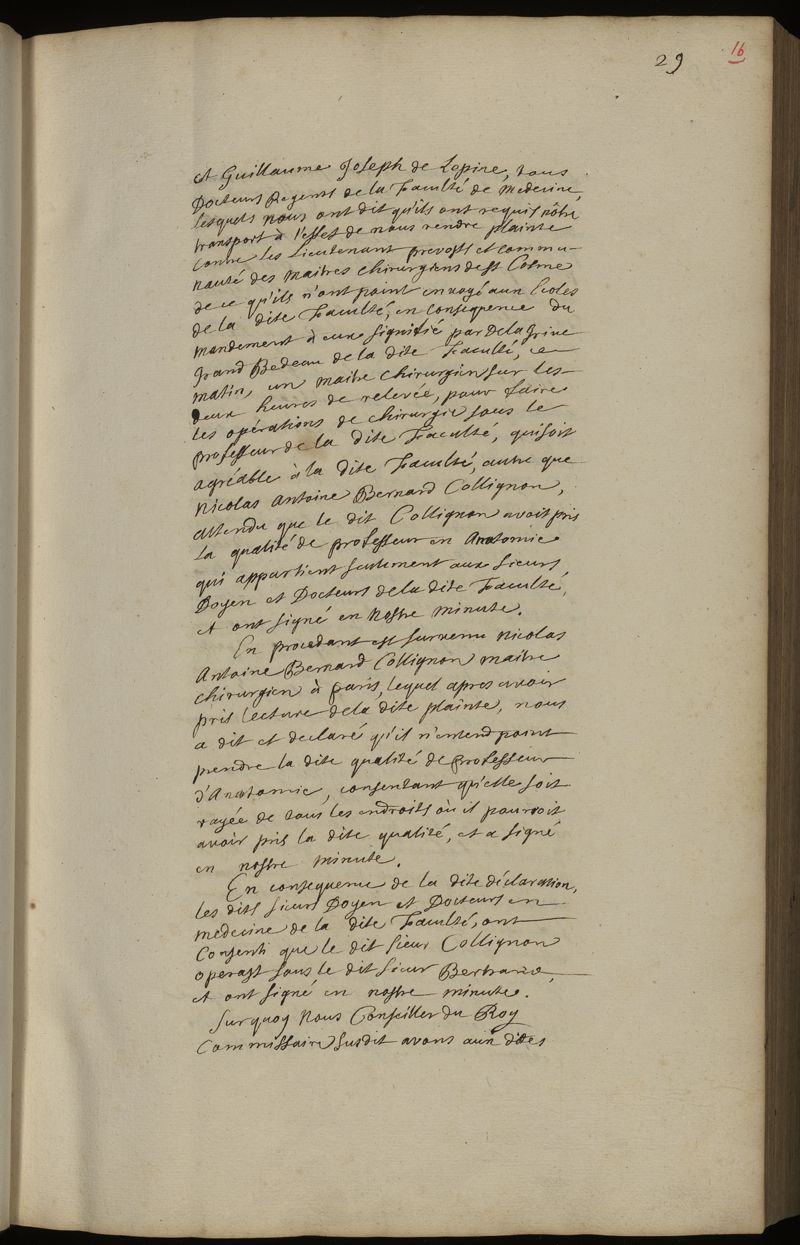 29
16
et Guillaume Joseph de Lepine, tous
Docteurs Regents de la Faculté de Medecine,
lesquels nous ont dit qu'ils ont requis nôtre
transport à l'effet de nous rendre plainte
contre les Lieutenant prevosts et commu-
nauté des maitres chirurgiens de St Cosme
de ce qu'ils n'ont point envoyé aux Ecoles
de la dite Faculté, en consequence du
mandement à eux signifié par Delagrive
grand Bedeau de la dite Faculté, ce
matin, un maitre chirurgien sur les
deux heures de relevée, pour faire
les opérations de chirurgie sous le
professeur de la dite Faculté, qui soit
agréable à la dite Faculté, autre que
Nicolas Antoine Bernard Collignon,
attendu que le dit Collignon avoit pris
la qualité de professeur en Anatomie
qui appartient seulement aux sieurs
Doyen et Docteurs de la dite Faculté,
et ont signé en Nostre minute.
En procedant est survenu Nicolas
Antoine Bernard Collignon maitre
chirurgien à paris, lequel apres avoir
pris lecture de la dite plainte, nous
a dit et declaré qu'il n'entend point
prendre la dite qualité de professeur
d'Anatomie, consentant qu'elle soit
rayée de tous les endroits où il pourroit
avoir pris la dite qualité, et a signé
en nostre minute.
En consequence de la dite déclaration,
les dits sieurs Doyen et Docteurs en
medecine de la dite Faculté, ont
Consenti que le dit sieur Collignon
operast sous le dit sieur Bertrand,
et ont signé en nostre minute.
Sur quoy Nous Conseiller du Roy
Commissaire susdit avons aux dites